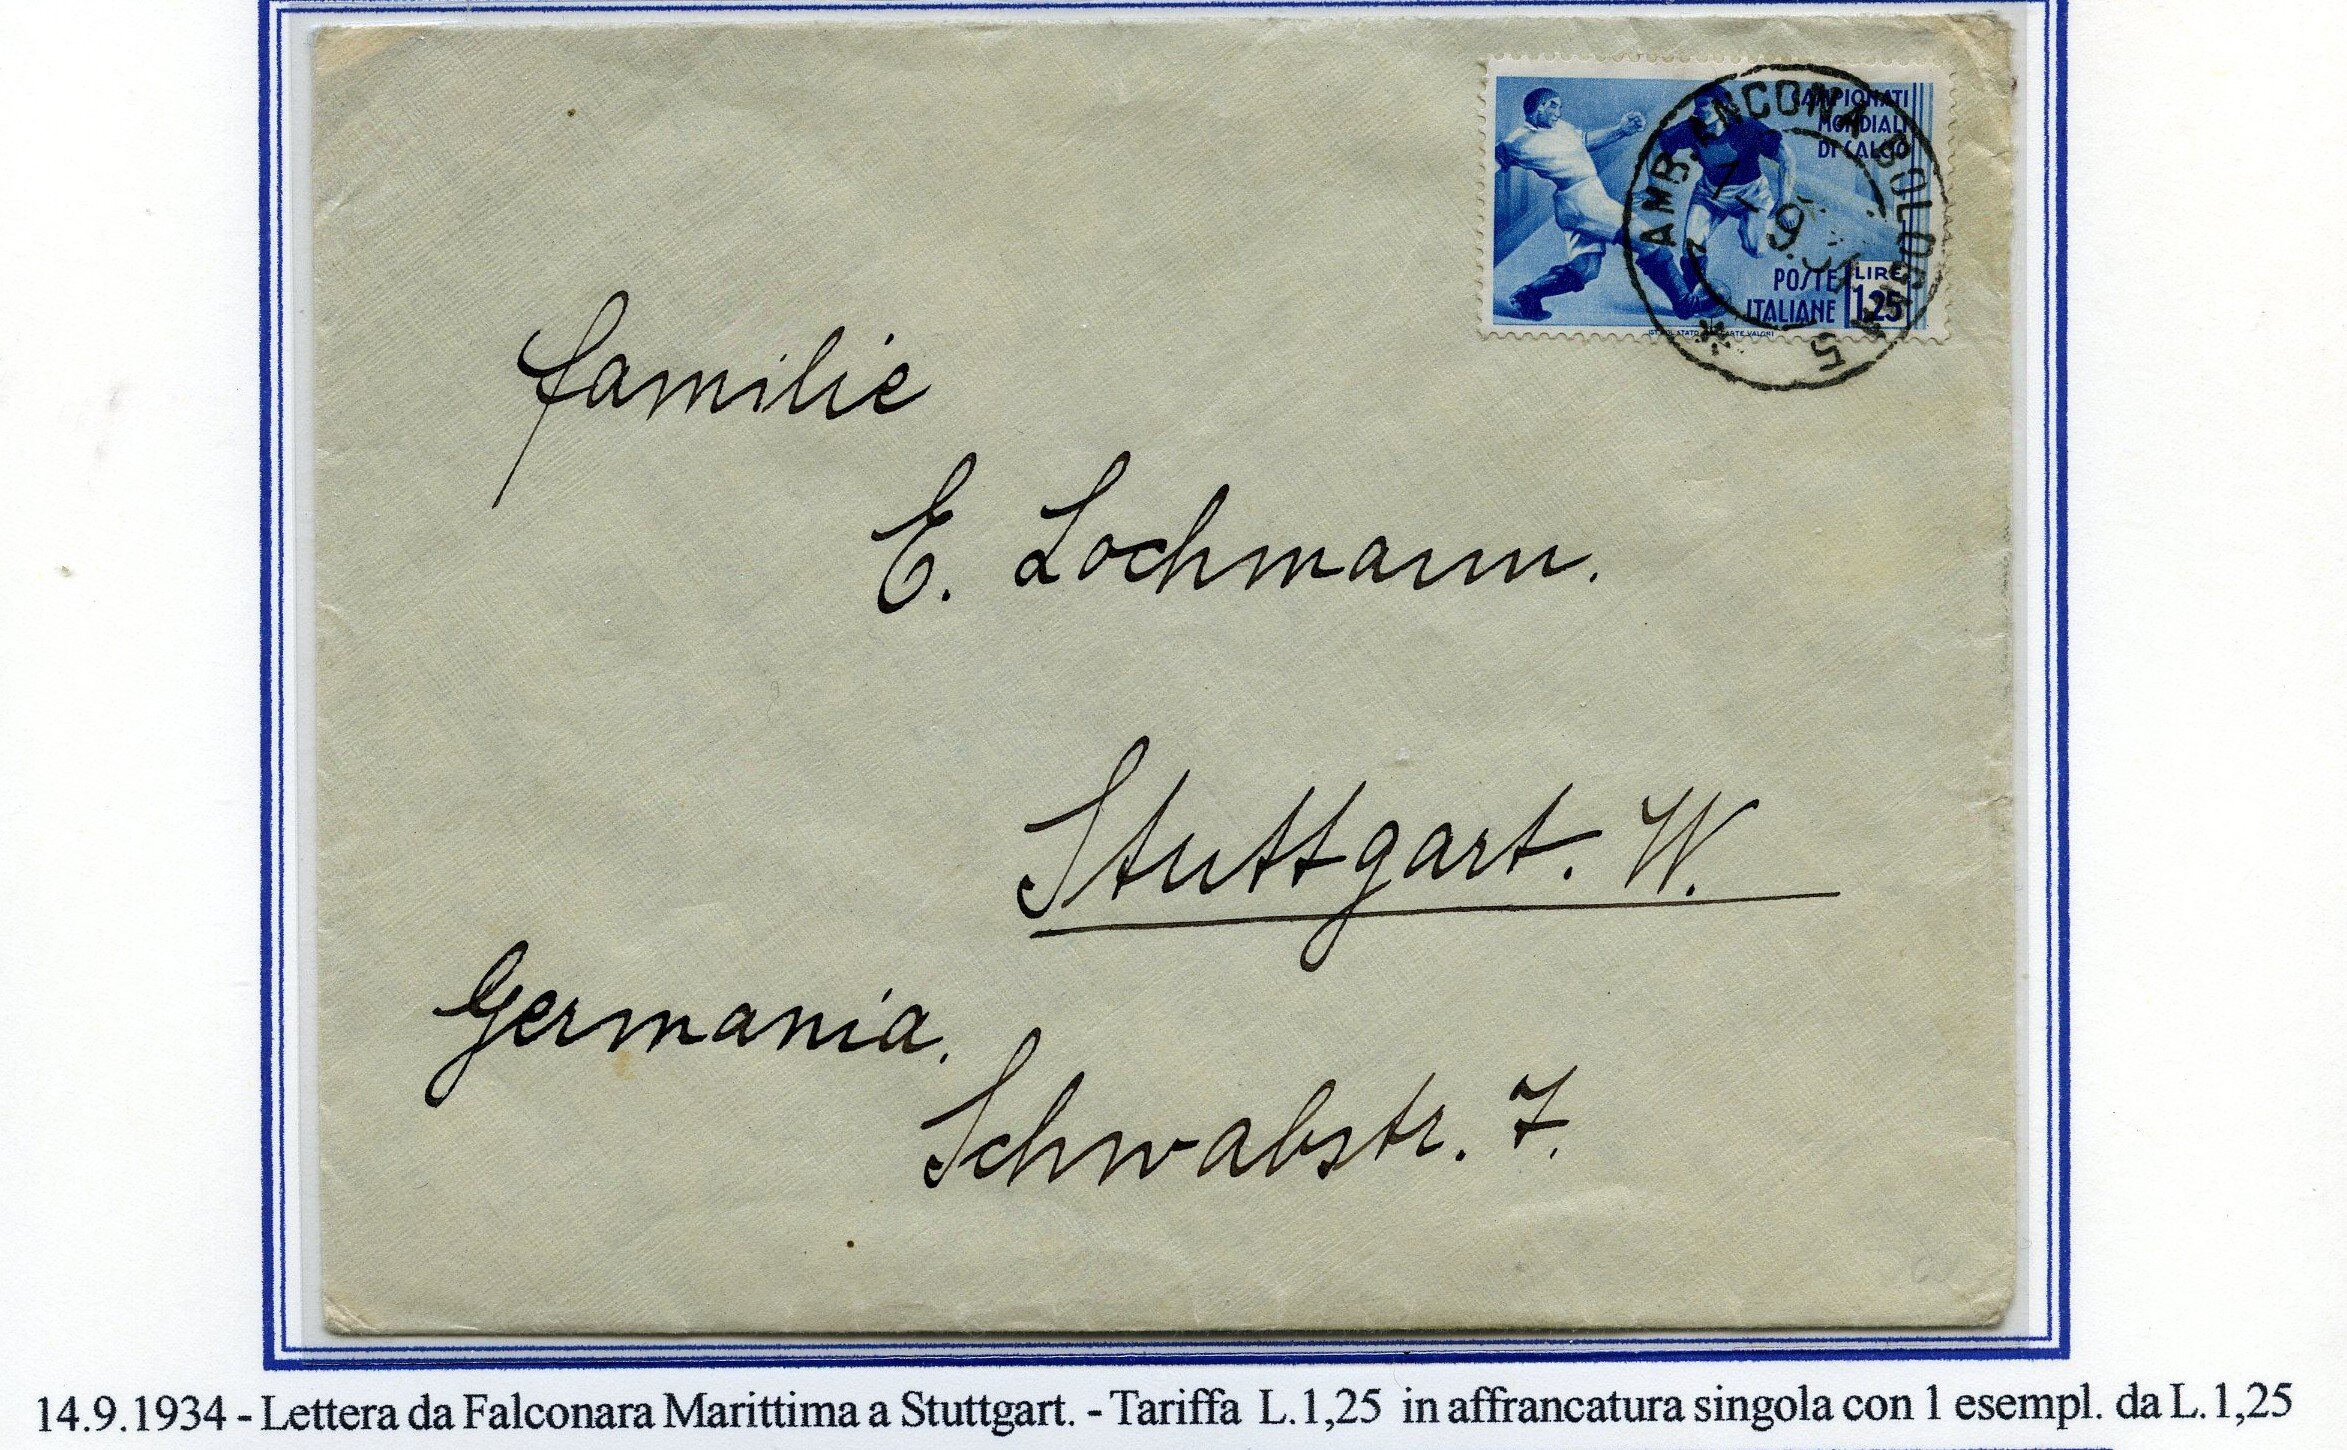 CAMPIONATI
MONDIALI
DI CALCIO
POSTE
ITALIANE
LIRE
1,25
AMB. ANCONA BOLOGNA
5
familie
E. Lochmann.
Stuttgart. W.
Germania.
Schwabstr. 7.
14.9.1934 - Lettera da Falconara Marittima a Stuttgart. - Tariffa L.1,25 in affrancatura singola con 1 esempl. da L.1,25